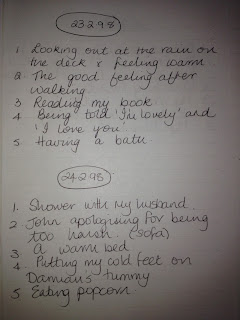 23.2.98
1. Looking out at the rain on
the deck & feeling warm
2. The good feeling after
walking
3 Reading my book
4 Being told 'I'm lovely' and
'I love you'
5. Having a bath
24.2.98
1. Shower with my husband
2 John apologising for being
too harsh. (sofa)
3 A warm bed
4 Putting my cold feet on
Damian's tummy
5 Eating popcorn